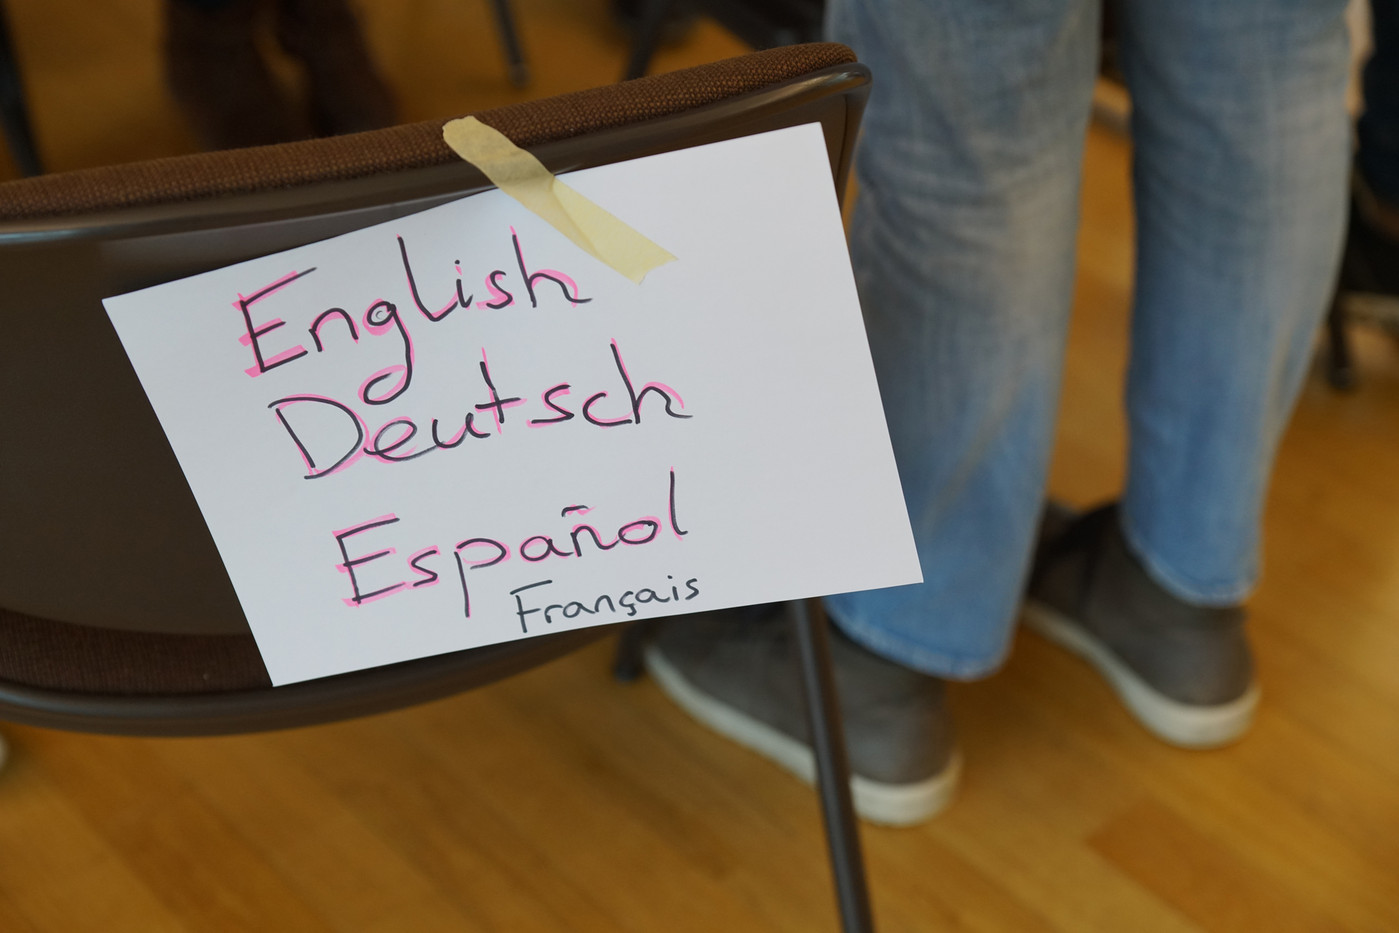 English
Deutsch
Español
Français